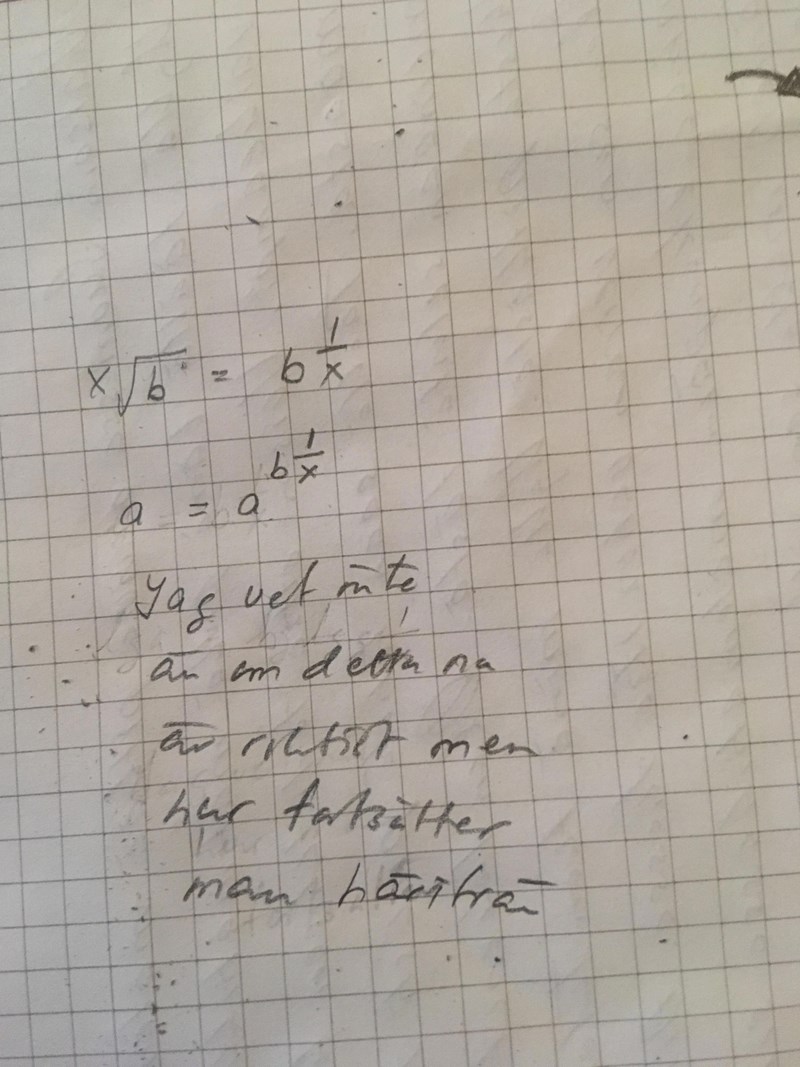 x√b = b^(1/x)
a = a^(b^(1/x))
Jag vet inte
än om detta
är riktigt men
hur fortsätter
man härifrån